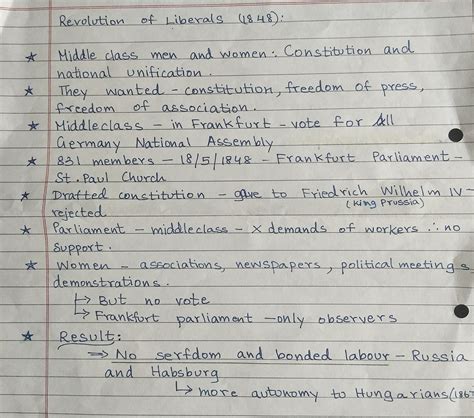 Revolution of Liberals (1848):
★ Middle class men and women: Constitution and
national unification.
★ They wanted - constitution, freedom of press,
freedom of association.
★ Middleclass - in Frankfurt - vote for All
Germany National Assembly
★ 831 members - 18/5/1848 - Frankfurt Parliament -
St. Paul Church
★ Drafted constitution - gave to Friedrich Wilhelm IV -
(King Prussia)
rejected
★ Parliament - middleclass - x demands of workers ∴ no
support.
★ Women - associations, newspapers, political meetings
demonstrations.
↳ But no vote
↳ Frankfurt parliament - only observers
★ Result:
⇒ No serfdom and bonded labour - Russia
and Habsburg
↳ more autonomy to Hungarians (1867